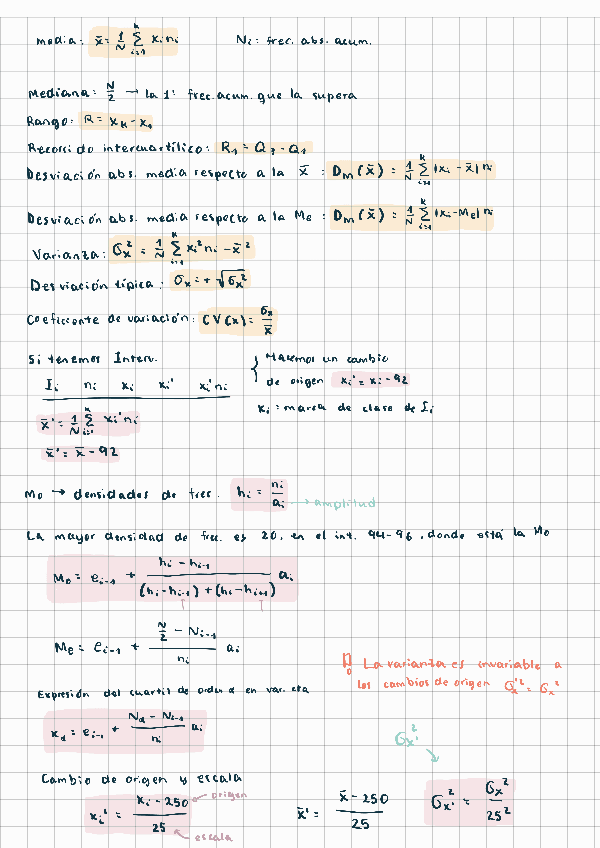 media: x̄ = 1/N Σ_{i=1}^{k} xᵢnᵢ    Nᵢ: frec. abs. acum.
Mediana: N/2 → la 1ª frec. acum. que la supera
Rango: R = x_k - x₁
Recorrido intercuartílico: R₁ = Q₃ - Q₁
Desviación abs. media respecto a la x̄ : D_M(x̄) = 1/N Σ_{i=1}^{k} |xᵢ - x̄| nᵢ
Desviación abs. media respecto a la Me : D_M(x̄) = 1/N Σ_{i=1}^{k} |xᵢ - Me| nᵢ
Varianza: σₓ² = 1/N Σ_{i=1}^{k} xᵢ² nᵢ - x̄²
Desviación típica: σₓ = + √σₓ²
Coeficiente de variación: CV(x) = σₓ/x̄
Si tenemos Interv.
Iᵢ nᵢ xᵢ xᵢ' xᵢ'nᵢ
{ Hacemos un cambio
de origen xᵢ' = xᵢ - 92
xᵢ : marca de clase de Iᵢ
x̄' = 1/N Σ_{i=1}^{k} xᵢ'nᵢ
x̄' = x̄ - 92
Mo → densidades de frec. hᵢ = nᵢ/aᵢ → amplitud
La mayor densidad de frec. es 20, en el int. 94-96, donde está la Mo
Mo = e_{i-1} + (hᵢ - h_{i-1}) / ((hᵢ - h_{i-1}) + (hᵢ - h_{i+1})) aᵢ
Me = e_{i-1} + (N/2 - N_{i-1}) / nᵢ aᵢ
La varianza es invariable a
los cambios de origen σₓ'² = σₓ²
Expresión del cuartil de orden α en var. cta
x_α = e_{i-1} + (N_α - N_{i-1}) / nᵢ aᵢ
σₓ'²
Cambio de origen y escala
xᵢ' = (xᵢ - 250) / 25    x̄' = (x̄ - 250) / 25    σₓ'² = σₓ² / 25²
origen
escala